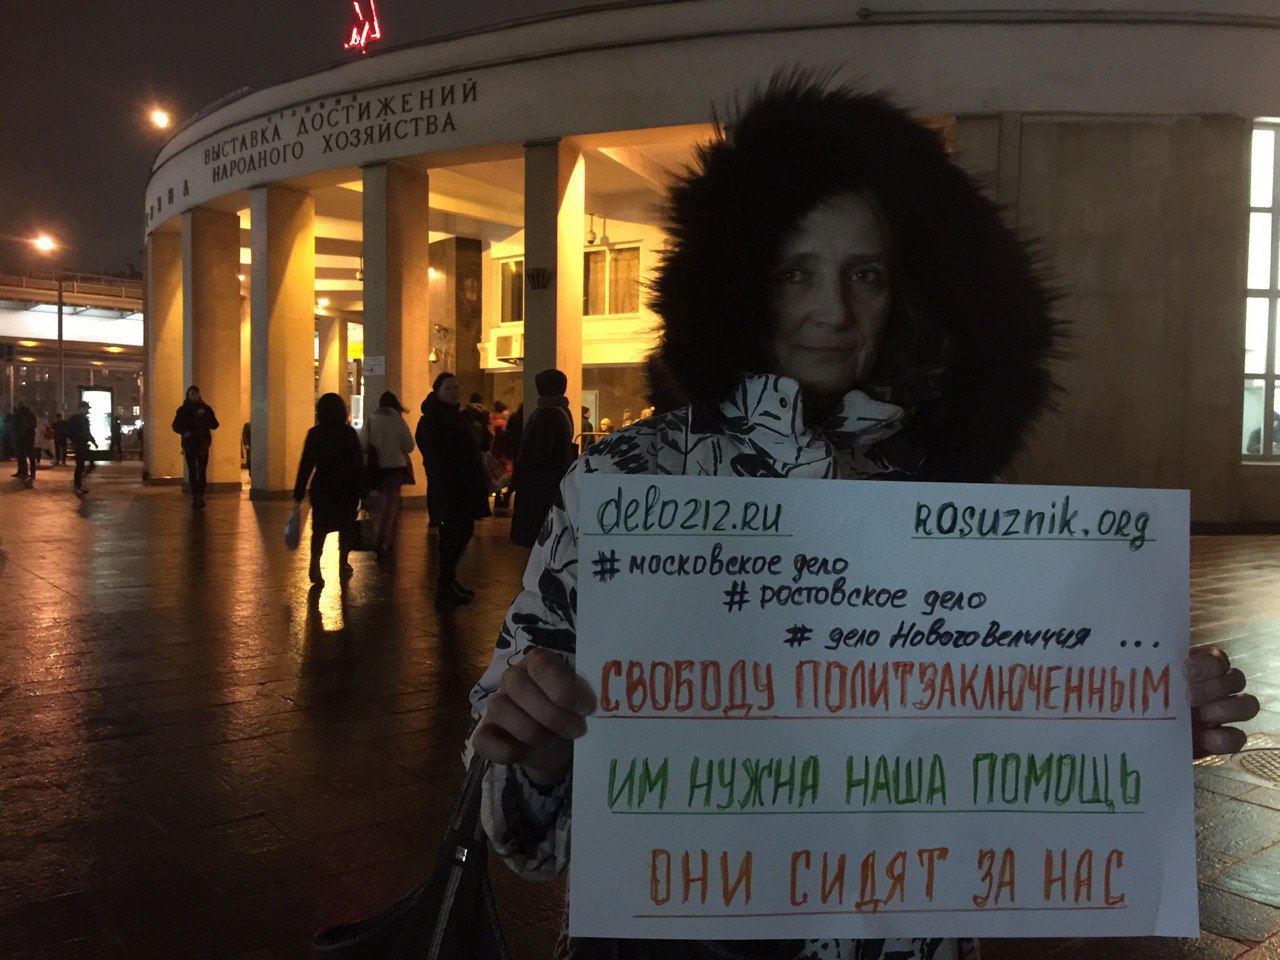 СТАНЦИЯ
ВЫСТАВКА ДОСТИЖЕНИЙ
НАРОДНОГО ХОЗЯЙСТВА
delo212.ru rosuznik.org
#московское дело
#ростовское дело
#дело Нового Величия ...
СВОБОДУ ПОЛИТЗАКЛЮЧЕННЫМ
ИМ НУЖНА НАША ПОМОЩЬ
ОНИ СИДЯТ ЗА НАС